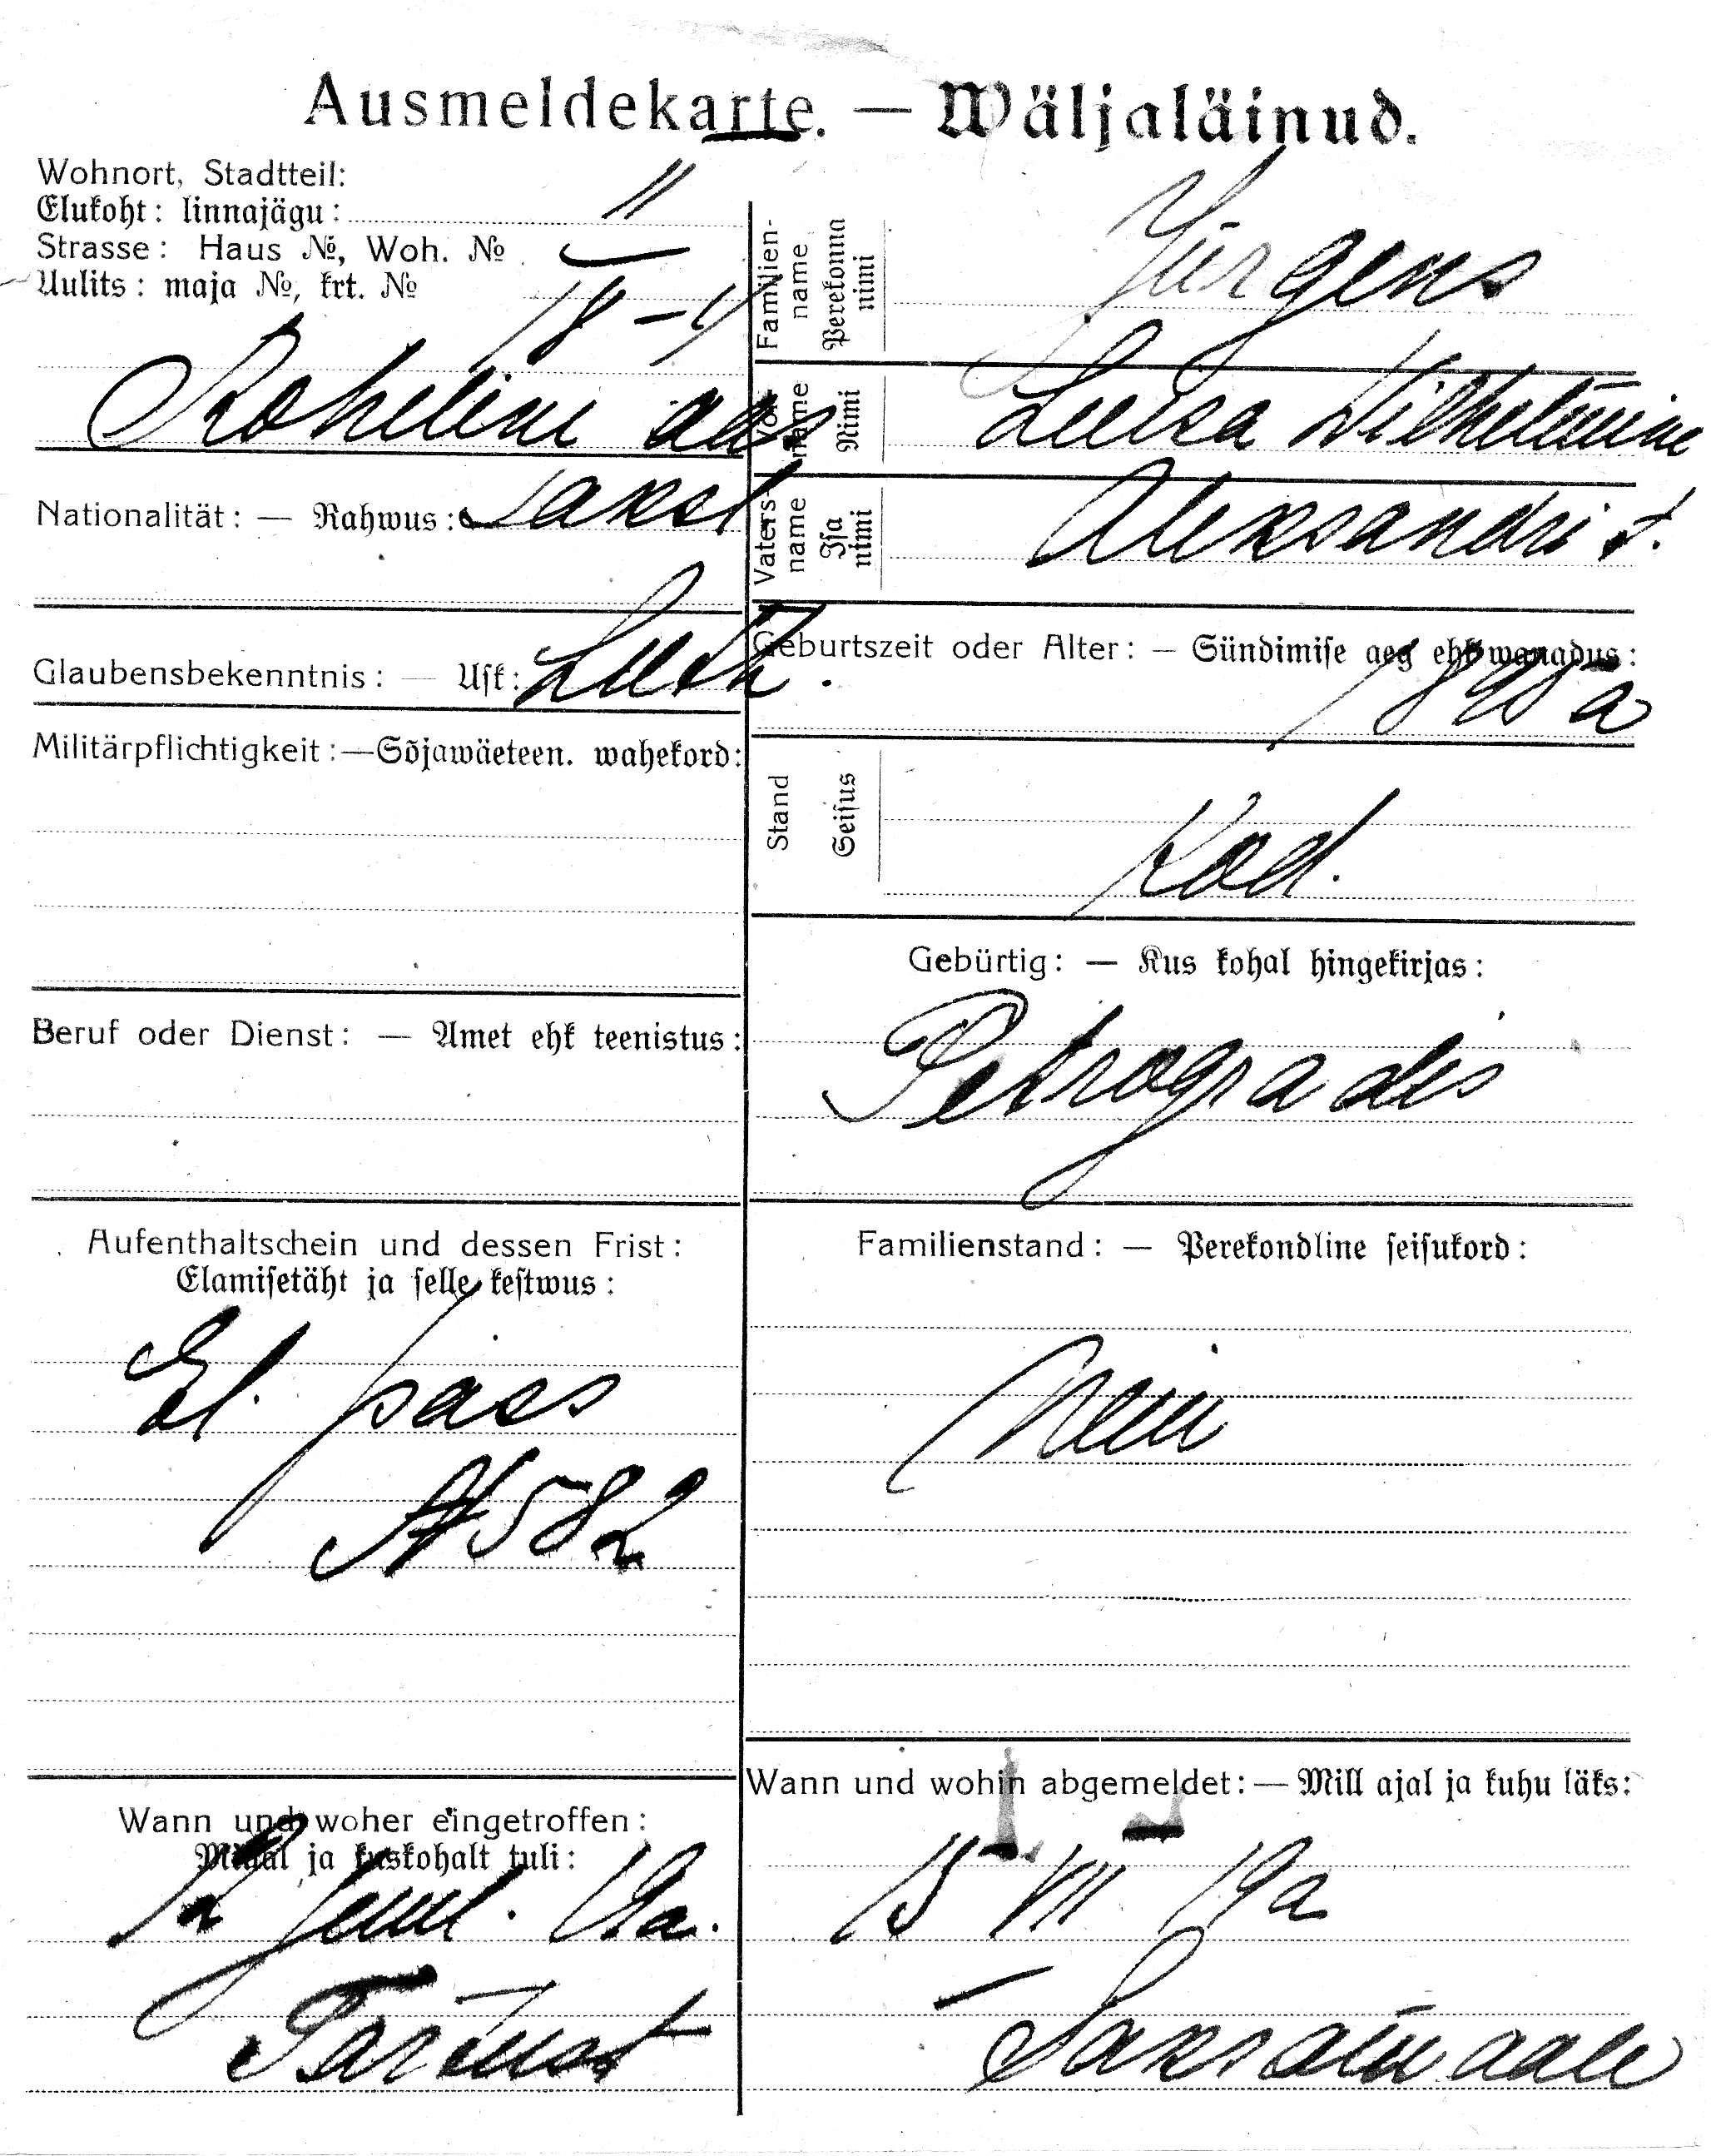 Ausmeldekarte. — Wäljaläinud.
Wohnort, Stadtteil:
Elukoht: linnajägu: II
Strasse: Haus №, Woh. №
Uulits: maja №, krt. №
18-4
Roheline aas
Nationalität: — Rahwus: Saksl
Glaubensbekenntnis: — Usk: Luth.
Militärpflichtigkeit: — Sõjawäeteen. wahekord:
Beruf oder Dienst: — Amet ehk teenistus:
Aufenthaltschein und dessen Frist:
Elamisetäht ja selle kestwus:
El. pass
№ 582
Wann und woher eingetroffen:
Mil ajal ja kuskohalt tuli:
12 Juul. 19a.
Familien-
name
Perekonna
nimi
Jürgens
Vor-
name
Nimi
Luisa Wilhelmine
Vaters-
name
Isa
nimi
Aleksandri t.
Geburtszeit oder Alter: — Sündimise aeg ehk wanadus:
Stand
Seisus
Kod.
Gebürtig: — Kus kohal hingekirjas:
Petrogradis
Familienstand: — Perekondline seisukord:
Neiu
Wann und wohin abgemeldet: — Mill ajal ja kuhu läks:
15 VII 19a
Saksamaale